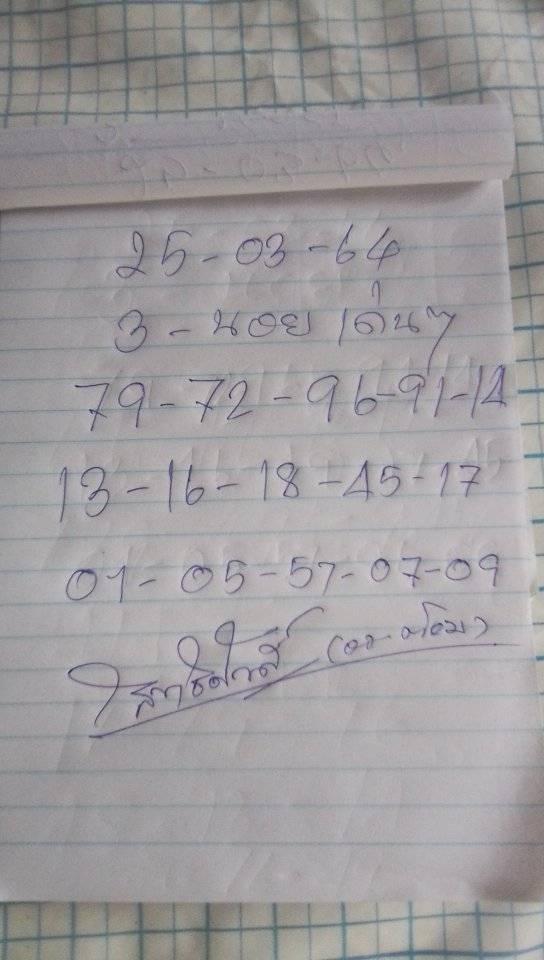 25-03-64
3-หอย เด่นๆ
79-72-96-91-14
13-16-18-45-17
01-05-57-07-09